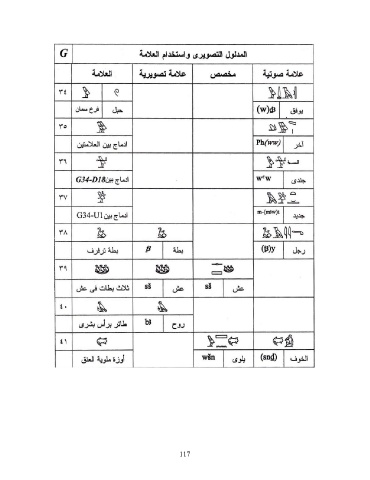 G المدلول التصويرى واستخدام العلامة
العلامة علامة تصويرية مخصص علامة صوتية
٣٤
فرخ سمان حبل (w)di يوفق
٣٥
ادماج بين العلامتين Ph(ww) آخر
٣٦
ادماج بين G34-D18 جندى
٣٧
ادماج بين G34-U1 m-(mtw)t جديد
٣٨
بطة ترفرف بطة (p)y رجل
٣٩
ثلاث بطات فى عش sš عش sš عش
٤٠
طائر برأس بشرى b3 روح
٤١
أوزة ملوية العنق wšn يلوى (snd) الخوف
117